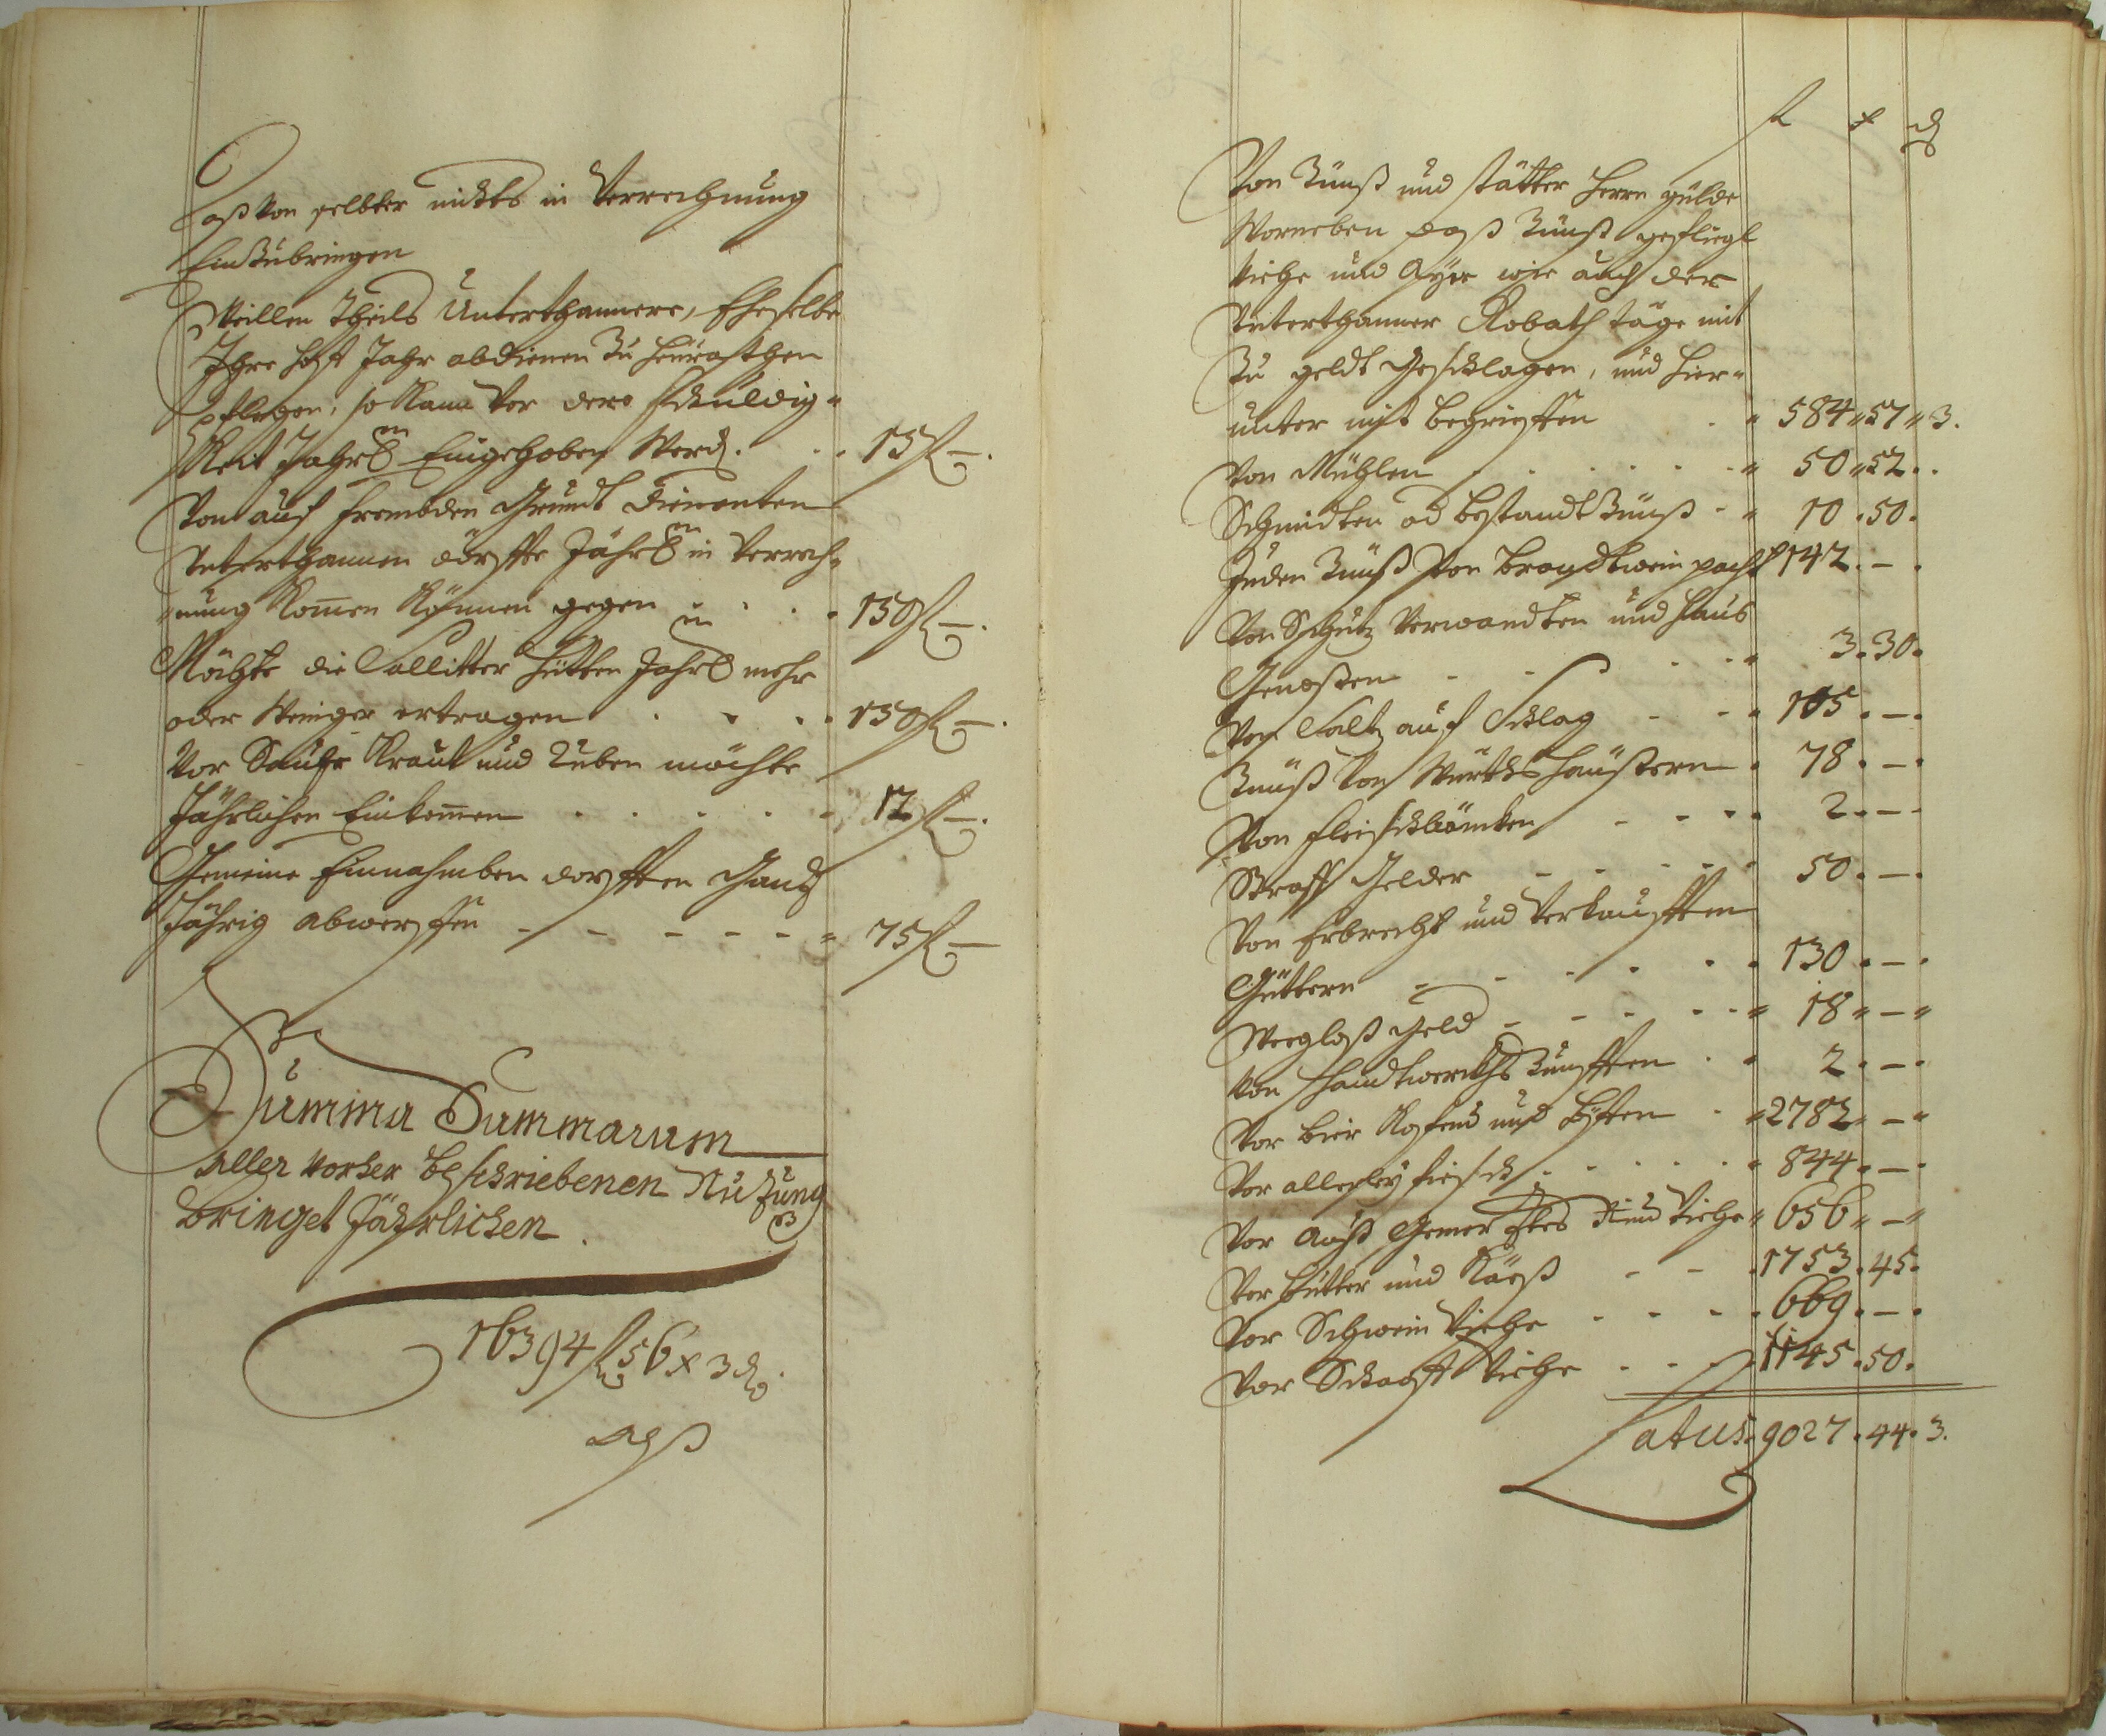 daß von selbter nichts in Verrechnung
Einzubringen
Weillen Theils Unterthannere, Ehe selbe
Ihre hoff Jahr abdienen zu heürathen
pflegen, so Kann vor dero schuldig-
Keit Jahrl: Eingehoben Werd. 15 fl —.
Von auf frembden Grundt dienenten
Unterthannen dörffte Jährl: in Verrech-
nung Komen Können gegen 150 fl —.
Möchte die Sallitter hütten Jahrl mehr
oder Weniger ertragen 150 fl —.
Vor Sauer Kraut und Rüben möchte
Jährlichen Einkomen 12 fl —.
Gemeine Einnahmben dorfften Gantz
Jährig abwerffen 75 fl —
Summa Summarum
aller vorher beschriebenen Nutzung
bringet Jährlichen
16394 fl 56 x 3 d.
alß
fl x d
Von Zünß und stätter herrn gülde
Worneben daß Zünß geflügl
Viehe und Ayer wie auch der
Unterthanner Robath täge mit
zu geldt Geschlagen, und hier-
unter mit begrieffen 584 57 3.
Von Mühlen 50 52
Schmidten od bestandt Zünß 10 . 50.
Juden Zünß Von brandtwein pacht 142 . — .
Von Schutz Verwandten und Haus
Genoßen 3. 30.
Von Saltz auf Schlag 105 . — .
Zünß Von Würthshäußern 78 . — .
Von fleischbäncken 2 . — .
Straff Gelder 50 . — .
Von Erbrecht und Verkaufften
Güttern 130 . — .
Weeglaß Geld 18 —
Von Handtwerckhs Zünfften 2 . — .
Vor bier Kofend und hefen 2782 —
Vor allerley fiesch 844 . — .
Vor auß Gemerstes Rind Viehe 656 —
Vor butter und Käeß 1753 . 45.
Vor Schwein Viehe 669 . — .
Vor Schaaff Viehe 1145 . 50.
Latus 9027 . 44. 3.